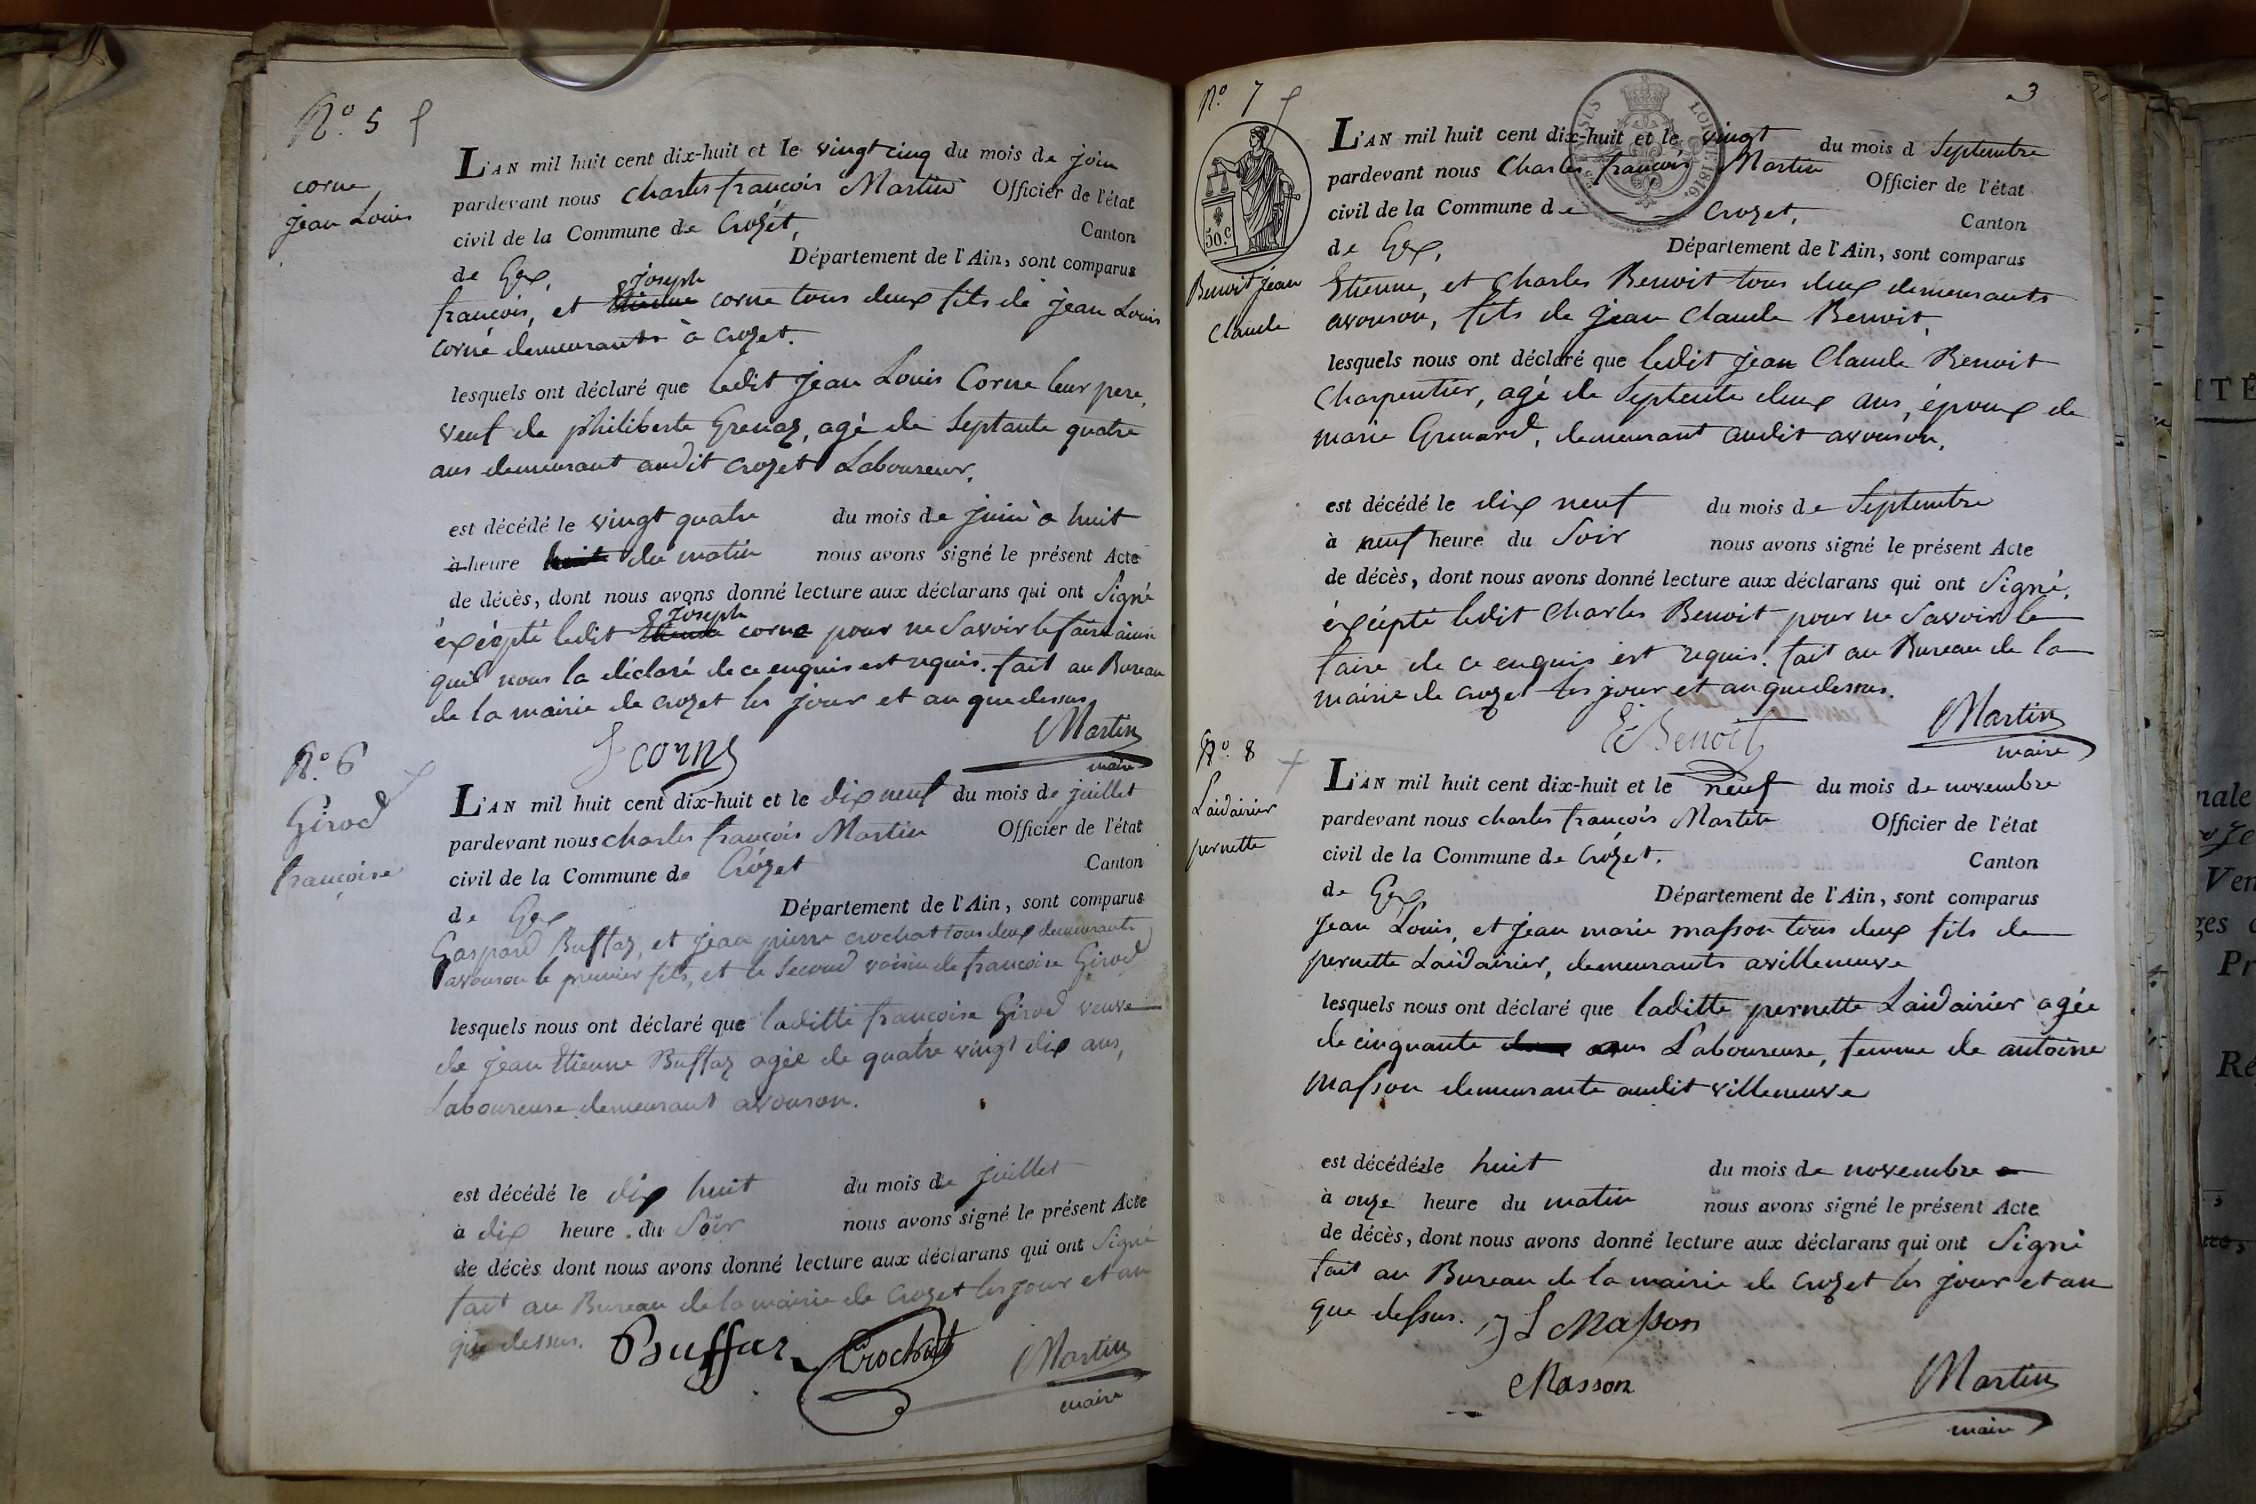 N.o 5
corne
jean Louis
L'AN mil huit cent dix-huit et le vingt cinq du mois de join
pardevant nous charles françois Martin Officier de l'état
civil de la Commune de Crozet, Canton
de Gex, Département de l'Ain, sont comparus
joseph
françois, et corne tous deux fils de jean Louis
corne demeurants à Crozet.
lesquels ont déclaré que ledit jean Louis Corne leur pere,
veuf de philiberte Grenaz, agé de septante quatre
ans demeurant audit crozet Laboureur,
est décédé le vingt quatre du mois de juin a huit
à heure huit du matin nous avons signé le présent Acte
de décès, dont nous avons donné lecture aux déclarans qui ont Signé
Joseph
éxcépté ledit corne pour ne Savoir le faire ainsi
quil nous la déclaré de ce enquis est requis. fait au Bureau
de la mairie de crozet les jour et an que dessus
f corne Martin
maire
N.o 6
Girod
françoise
L'AN mil huit cent dix-huit et le dix neuf du mois de juillet
pardevant nous charles françois Martin Officier de l'état
civil de la Commune de Crózet Canton
de Gex Département de l'Ain, sont comparus
Gaspard Buffaz, et jean pierre crochat tous deux demeurants
avouson le premier fils, et le Second voisin de francoise Girod
lesquels nous ont déclaré que laditte françoise Girod veuve
de jean Etienne Buffaz agée de quatre vingt dix ans,
Laboureuse demeurant avouson.
est décédé le dix huit du mois de juillet
à dix heure du Soir nous avons signé le présent Acte
de décès dont nous avons donné lecture aux déclarans qui ont Signé
fait au Bureau de la mairie de Crozet les jour et an
que dessus. Buffaz Crochat Martin
maire
3
N.o 7
50.c
Benoit jean
Claude
L'AN mil huit cent dix-huit et le vingt du mois d Septembre
pardevant nous Charles françois Martin Officier de l'état
civil de la Commune de Crozet, Canton
de Gex, Département de l'Ain, sont comparus
Etienne, et Charles Benoit tous deux demeurants
avouson, fils de jean Claude Benoit,
lesquels nous ont déclaré que ledit jean Claude Benoit
Charpentier, agé de Septente deux ans, époux de
marie Grenard, demeurant audit avouson,
est décédé le dix neuf du mois de Septembre
à neuf heure du Soir nous avons signé le présent Acte
de décès, dont nous avons donné lecture aux déclarans qui ont Signé,
éxcépté ledit Charles Benoit pour ne Savoir le
faire de ce enquis est requis. fait au Bureau de la
mairie de crozet les jour et an que dessus.
E Benoit Martin
maire
N.o 8
Laidairier
pernette
L'AN mil huit cent dix-huit et le neuf du mois de novembre
pardevant nous charles francois Martin Officier de l'état
civil de la Commune de Crozet. Canton
de Gex Département de l'Ain, sont comparus
jean Louis, et jean marie masson tous deux fils de
pernette Laidairier, demeurants avilleneuve
lesquels nous ont déclaré que laditte pernette Laidairier agée
de cinquante ans Laboureuse, femme de antoine
Masson demeurante audit villeneuve
est décédée le huit du mois de novembre
à onze heure du matin nous avons signé le présent Acte
de décès, dont nous avons donné lecture aux déclarans qui ont Signé
fait au Bureau de la mairie de Crozet les jour et an
que dessus. J L Masson
Masson Martin
maire